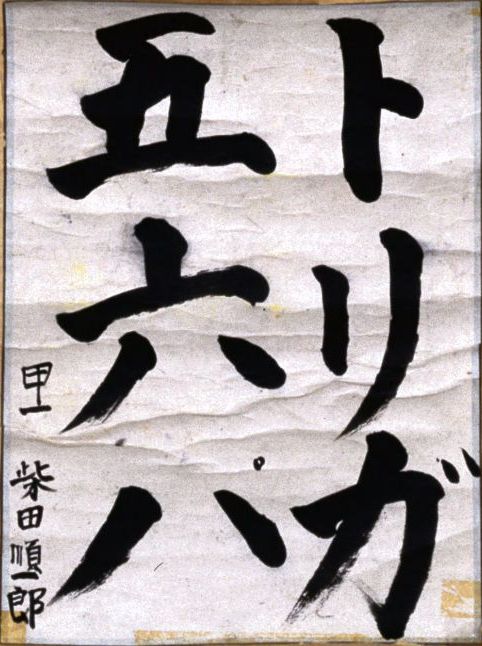 トリガ
五六パ
甲一 柴田順一郎